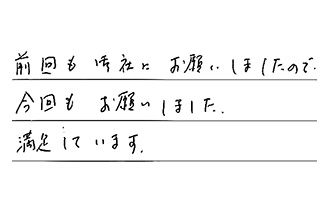 前回も御社にお願いしましたので
今回もお願いしました.
満足しています.